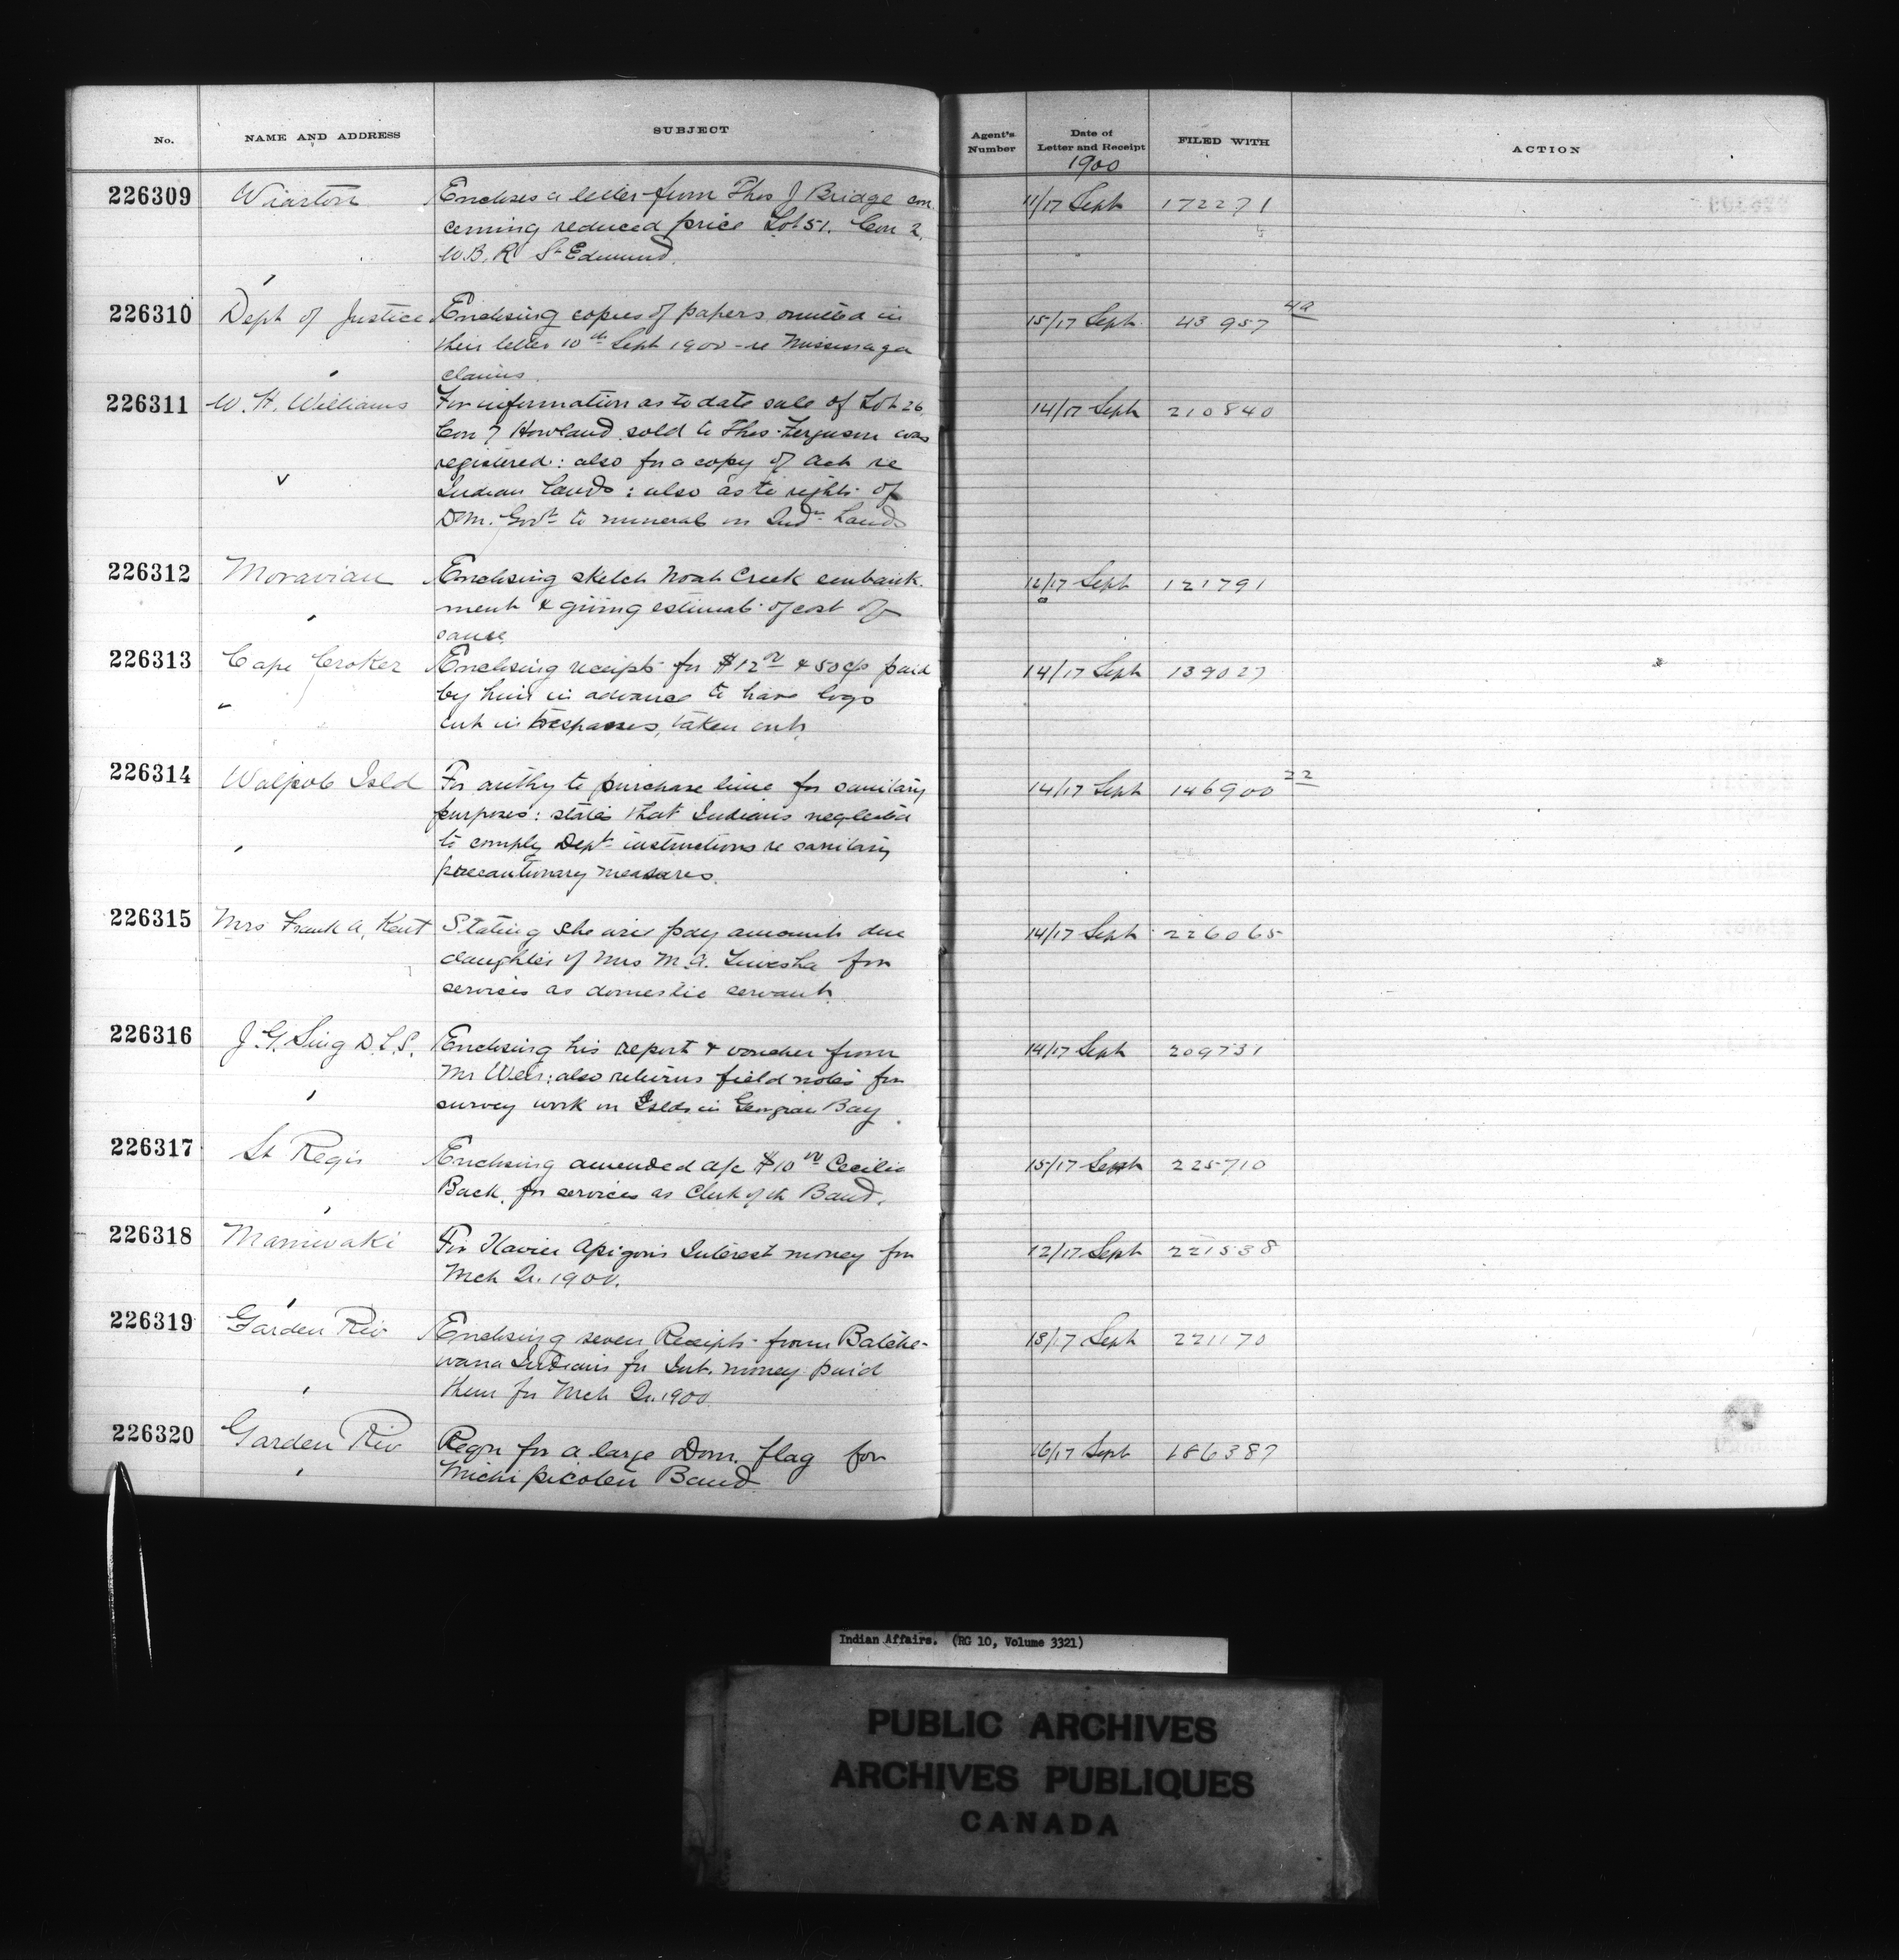 No. NAME AND ADDRESS SUBJECT Agent's Number Date of Letter and Receipt FILED WITH ACTION
1900
226309 Wiarton Encloses a letter from Thos J Bridge con- 11/17 Sept 172271
cerning reduced price Lot 51. Con 2,
W.B.R St Edmund.
226310 Dept of Justice Enclosing copies of papers omitted in 15/17 Sept. 43957 4a
their letter 10th Sept 1900 - re Mississaga
claims.
226311 W. H. Williams For information as to date sale of Lot 26, 14/17 Sept 210840
Con 7 Howland sold to Thos. Ferguson was
registered: also for a copy of Act re
Indian Lands: also as to rights of
Dom. Govt to minerals on Indn Lands
226312 Moravian Enclosing sketch Noah Creek embank- 12/17 Sept 121791
ment & giving estimate of cost of
same
226313 Cape Croker Enclosing receipts for $12 00 & 50c/s paid 14/17 Sept 139027
by him in advance to have logs
cut in trespasses, taken out.
226314 Walpole Isld For authy to purchase lime for sanitary 14/17 Sept 146900 22
purposes: states that Indians neglected
to comply Dept instructions re sanitary
precautionary measures.
226315 Mrs Frank A. Kent Stating she will pay amount due 14/17 Sept 226065
daughter of Mrs M. A. for
services as domestic servant.
226316 J. G. Sing D.L.S. Enclosing his report & voucher from 14/17 Sept 209731
Mr Weir: also returns field notes for
survey work on Islds in Georgian Bay.
226317 St Regis Enclosing amended a/c $10 00 Cecilia 15/17 Sept 225710
Back, for services as Clerk of the Band.
226318 Maniwaki For Xavier Apigon's Interest money for 12/17 Sept 221538
Mch Qr. 1900.
226319 Garden Riv Enclosing seven Receipts from Batche- 13/17 Sept 221170
wana Indians for Int. money paid
them for Mch Qr. 1900.
226320 Garden Riv Reqn for a large Dom. flag for 16/17 Sept 186387
Michipicoten Band
Indian Affairs. (RG 10, Volume 3321)
PUBLIC ARCHIVES
ARCHIVES PUBLIQUES
CANADA